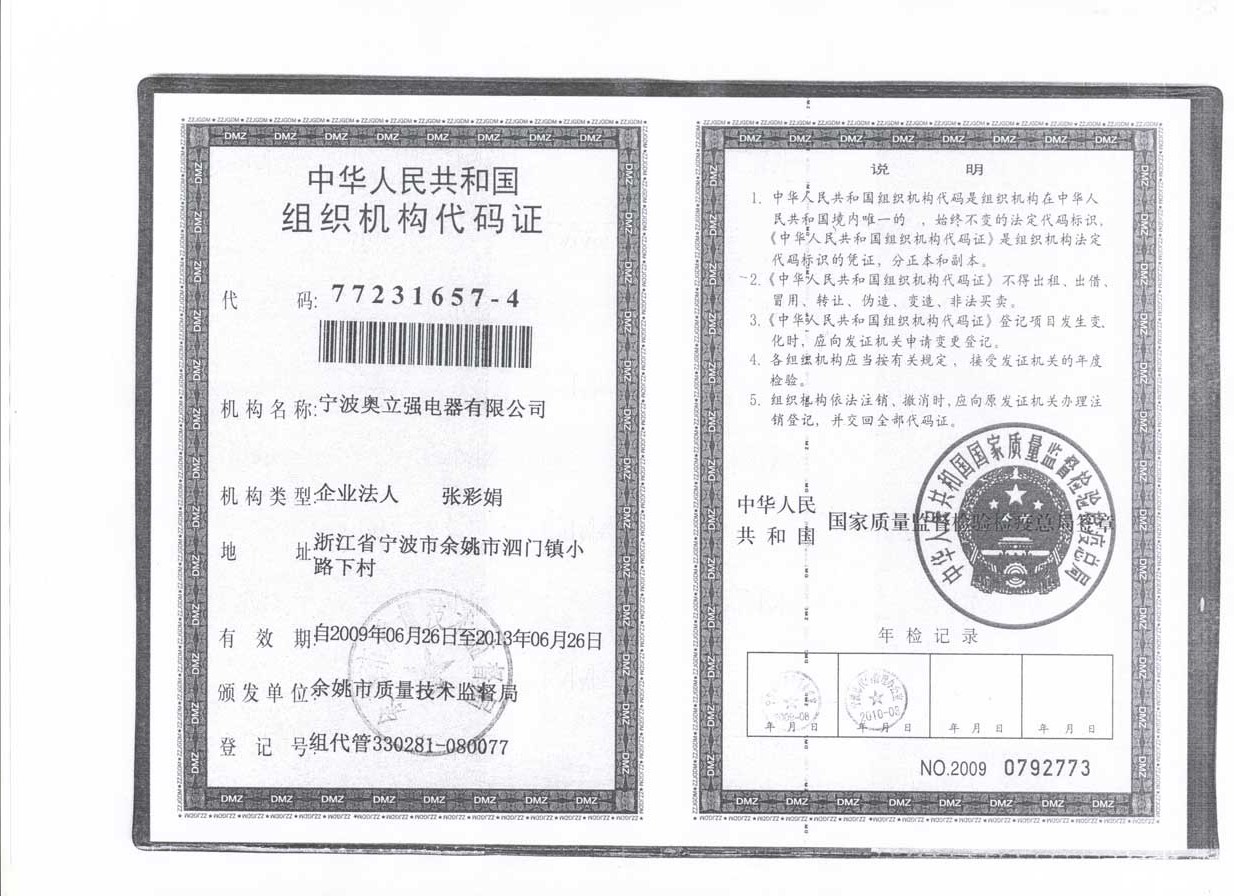 中华人民共和国
组织机构代码证
代 码: 77231657-4
机构名称: 宁波奥立强电器有限公司
机构类型: 企业法人 张彩娟
地 址: 浙江省宁波市余姚市泗门镇小
路下村
有 效 期: 自2009年06月26日至2013年06月26日
颁发单位: 余姚市质量技术监督局
登 记 号: 组代管330281-080077
说 明
1. 中华人民共和国组织机构代码是组织机构在中华人
民共和国境内唯一的 、始终不变的法定代码标识,
《中华人民共和国组织机构代码证》是组织机构法定
代码标识的凭证, 分正本和副本。
2.《中华人民共和国组织机构代码证》不得出租、出借、
冒用、转让、伪造、变造、非法买卖。
3.《中华人民共和国组织机构代码证》登记项目发生变
化时, 应向发证机关申请变更登记。
4. 各组织机构应当按有关规定, 接受发证机关的年度
检验。
5. 组织机构依法注销、撤消时,应向原发证机关办理注
销登记, 并交回全部代码证。
中华人民
共和国 国家质量监督检验检疫总局签章
中华人民共和国国家质量监督检验检疫总局
年检记录
2009-08
2010-03
年 月 日 年 月 日 年 月 日 年 月 日
NO.2009 0792773